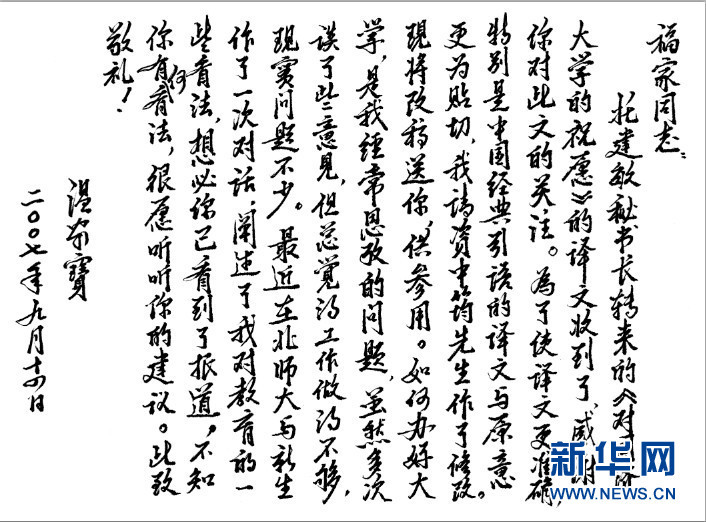 福家同志：
托建敏秘书长转来的《对
大学的祝愿》的译文收到了，感谢
你对此文的关注。为了使译文更准确，
特别是中国经典引语的译文与原意
更为贴切，我请资中筠先生作了修改。
现将改稿送你，供参用。如何办好大
学，是我经常思考的问题，虽然多次
谈了些意见，但总觉得工作做得不够，
现实问题不少。最近在北师大与新生
作了一次对话，阐述了我对教育的一
些看法，想必你已看到了报道，不知
你有何看法，很愿听听你的建议。此致
敬礼！
温家宝
二〇〇七年九月十四日
新华网
WWW.NEWS.CN